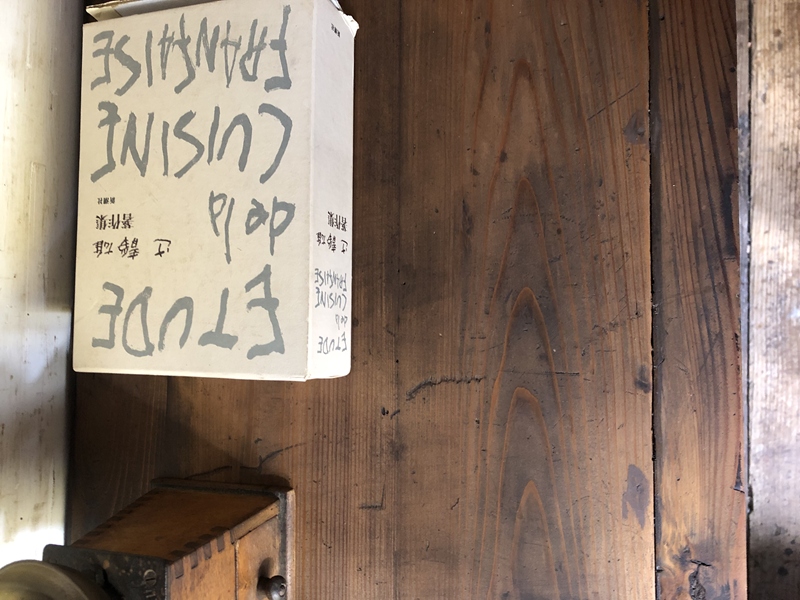 ETUDE
de la
CUISINE
FRANÇAISE
辻静雄
著作集
新潮社
ETUDE
de la
CUISINE
FRANÇAISE
辻静雄
著作集
新潮社